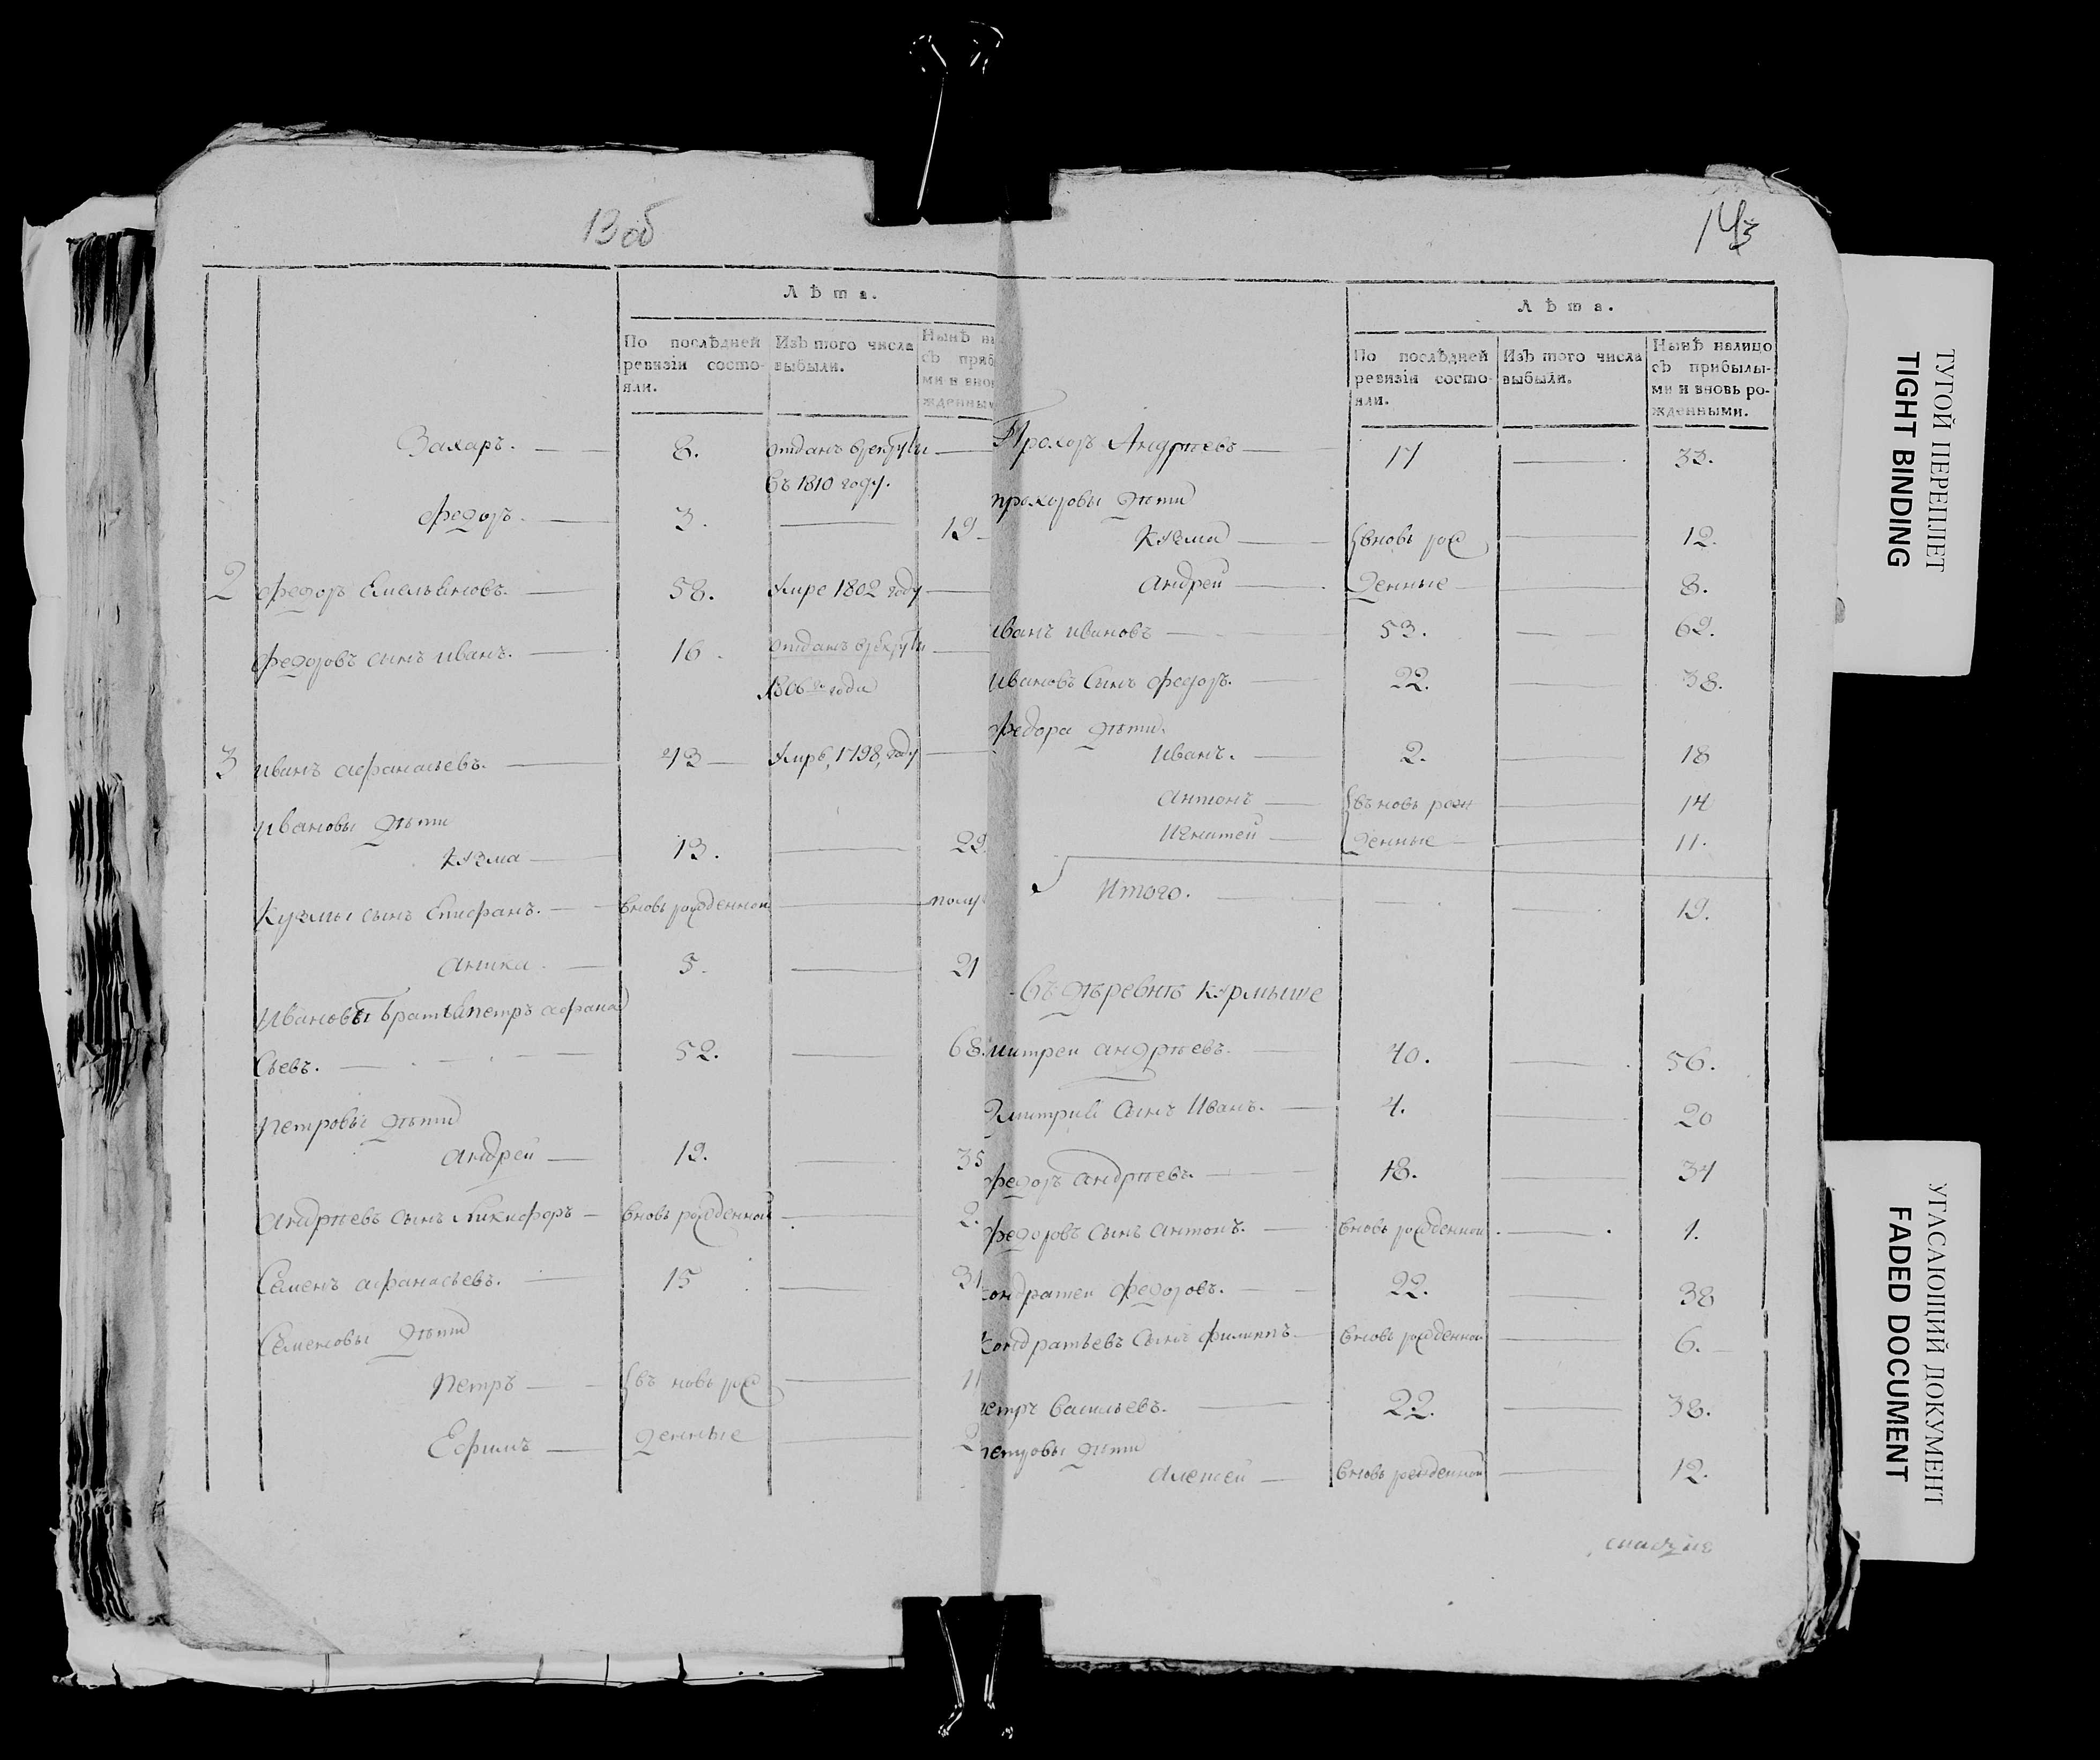 13 об
Лѣта.
По послѣдней ревизіи состо-яли.
Изъ того числа выбыли.
Нынѣ на
съ приб
ми и внов
жденным
Захаръ. — 8. отданъ врекруты —
въ 1810 году.
Федоръ. — 3. — 19
2 Федоръ Емельяновъ. — 58. Умре 1802 году —
Федоровъ сынъ иванъ. — 16. отданъ врекруты —
1806го года
3 иванъ афанасьевъ. — 43 — Умре, 1798, году —
ивановы дѣти
кузма — 13. — 29
Кузмы сынъ Епифанъ. — вновь рожденной — полу
аника. — 5. — 21
ивановы братья петръ афана
сьевъ. — 52. — 68.
петровы дѣти
андрей — 19. — 35
андрѣевъ сынъ Никифоръ — вновь рожденной — 2.
Семенъ афанасьевъ. — 15 — 31
Семеновы дѣти
петръ — въ новь рож — 11
Ефимъ — денные — 2
14
Лѣта.
По послѣдней ревизіи состо-яли.
Изъ того числа выбыли.
Нынѣ налицо съ прибылы-ми и вновь ро-жденными.
Прохоръ Андрѣевъ — 17 — 33.
прохоровы дѣти
кузма — вновь рож — 12.
андрей — денные — 8.
иванъ ивановъ — 53. — 62.
ивановъ сынъ федоръ. — 22. — 38.
федора дѣти.
иванъ. — 2. — 18
антонъ — въ новь рож — 14
игнатей — денные — 11.
Итого. — 19.
Въ дѣревнѣ курмыше
митреи андрѣевъ. — 40. — 56.
Дмитрия сынъ Иванъ. — 4. — 20
федоръ андрѣевъ. — 18. — 34
федоровъ сынъ антонъ. — вновь рожденной — 1.
кондратеи федоровъ. — 22. — 38
кондратьевъ сынъ филиппъ — вновь рожденной — 6.
петръ васильевъ. — 22. — 38.
петровы дѣти
алексей — вновь рожденной — 12.
ТУГОЙ ПЕРЕПЛЕТ
TIGHT BINDING
УГАСАЮЩИЙ ДОКУМЕНТ
FADED DOCUMENT